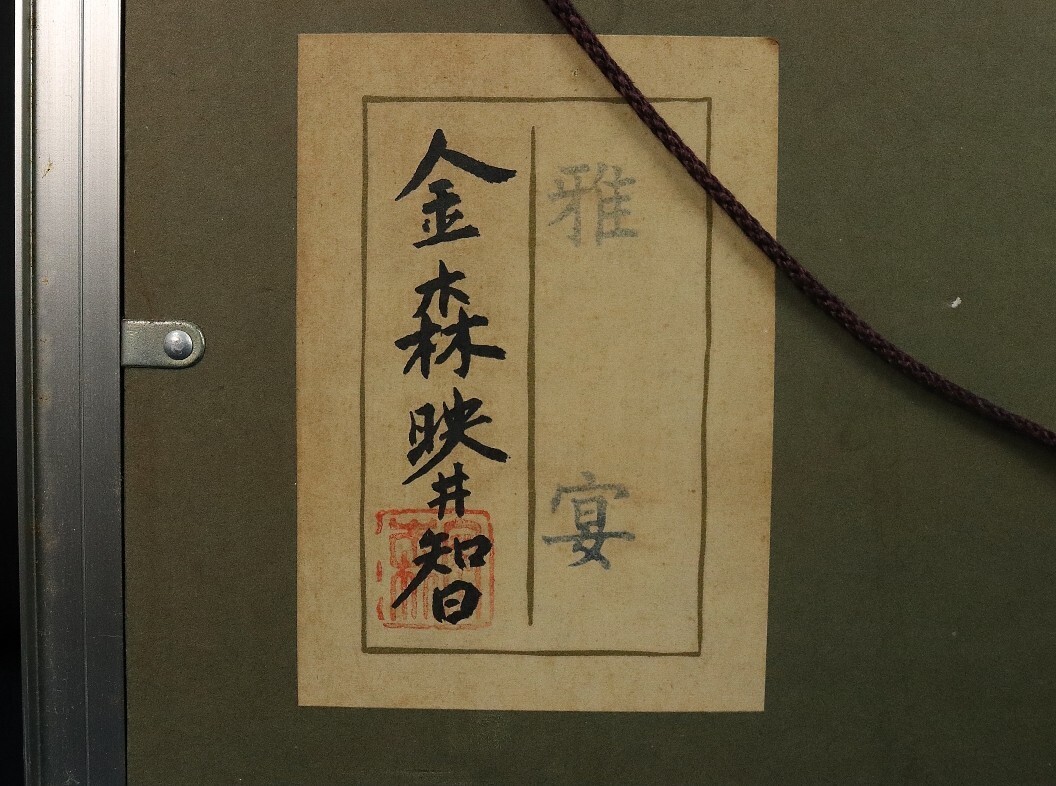 雅宴
金森映井智